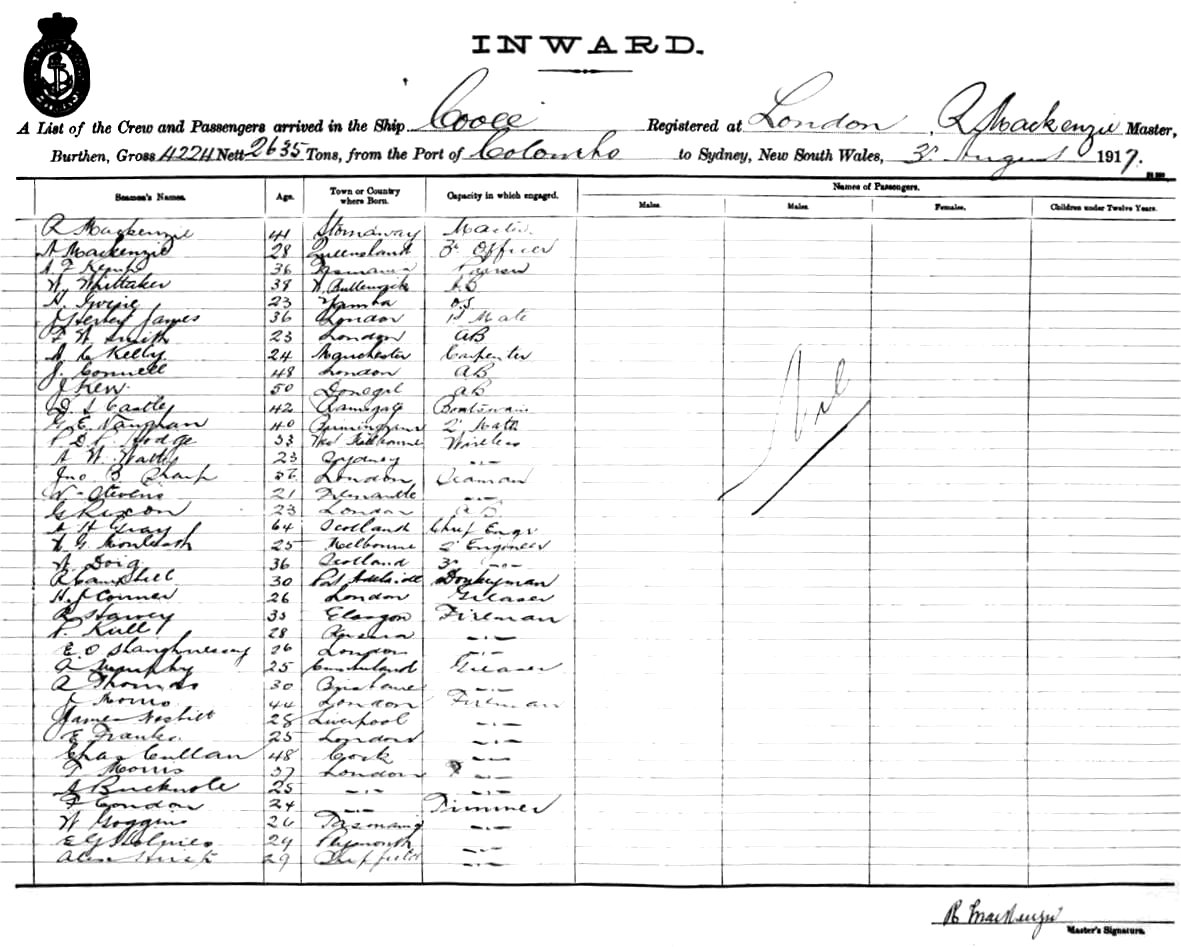 INWARD.
A List of the Crew and Passengers arrived in the Ship Cooee Registered at London R Mackenzie Master,
Burthen, Gross 4224 Nett 2635 Tons, from the Port of Colombo to Sydney, New South Wales, 3 August 1917.
Seamen's Names. Age. Town or Country where Born. Capacity in which engaged. Names of Passengers.
Males. Males. Females. Children under Twelve Years.
R Mackenzie 41 Stornaway Master
A Mackenzie 28 Queensland 3 Officer
36 Tasmania
W Whittaker 38 AB
H. 23 Yamba O.S
James 36 London 1st Mate
F W Smith 23 London AB
A C Kelly 24 Manchester Carpenter
J. Connell 48 London AB
J Kerr 50 Donegal AB
D. S Castley 42 Ramsgate Boatswain
G E Vaughan 40 Birmingham 2 Mate
P. D. P. Hodge 53 Melbourne Wireless
A W. Watts 23 Sydney -.-
Jno B Sharp London Seaman
W Stevens 21 Fremantle -.-
G Rixon 23 London AB
A H Gray 64 Scotland Chief Engr
25 Melbourne 2 Engineer
W. Doig 36 Scotland 3 -.-
R Campbell 30 Port Adelaide Donkeyman
H. J Conner 26 London Greaser
R Harvey 35 Glasgow Fireman
P. Kull 28 Russia -.-
E. O Shaughnessy 26 London -.-
A Murphy 25 Cumberland Greaser
R Thomas 30 Brisbane -.-
J Morris 44 London Fireman
James Nesbitt 28 Liverpool -.-
E Franks 25 London -.-
Chas Cullan 48 Cork -.-
T Morris 37 London -.-
A Bucknole 25 -.- -.-
F Condon 24 -.- Trimmer
W Goggins 26 Tasmania -.-
E G 24 Plymouth -.-
Alex 29 Sheffield -.-
Nil
R Mackenzie
Master's Signature.